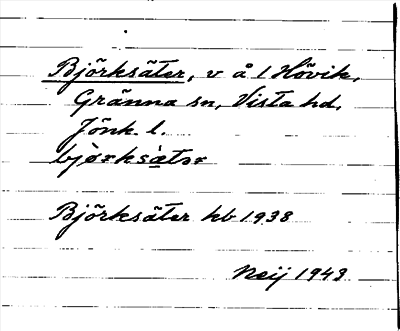 Björksäter, v å 1 Hövik,
Gränna sn, Vista hd,
Jönk. l.
bjørksätər
Björksäter hb 1938
Neij 1943